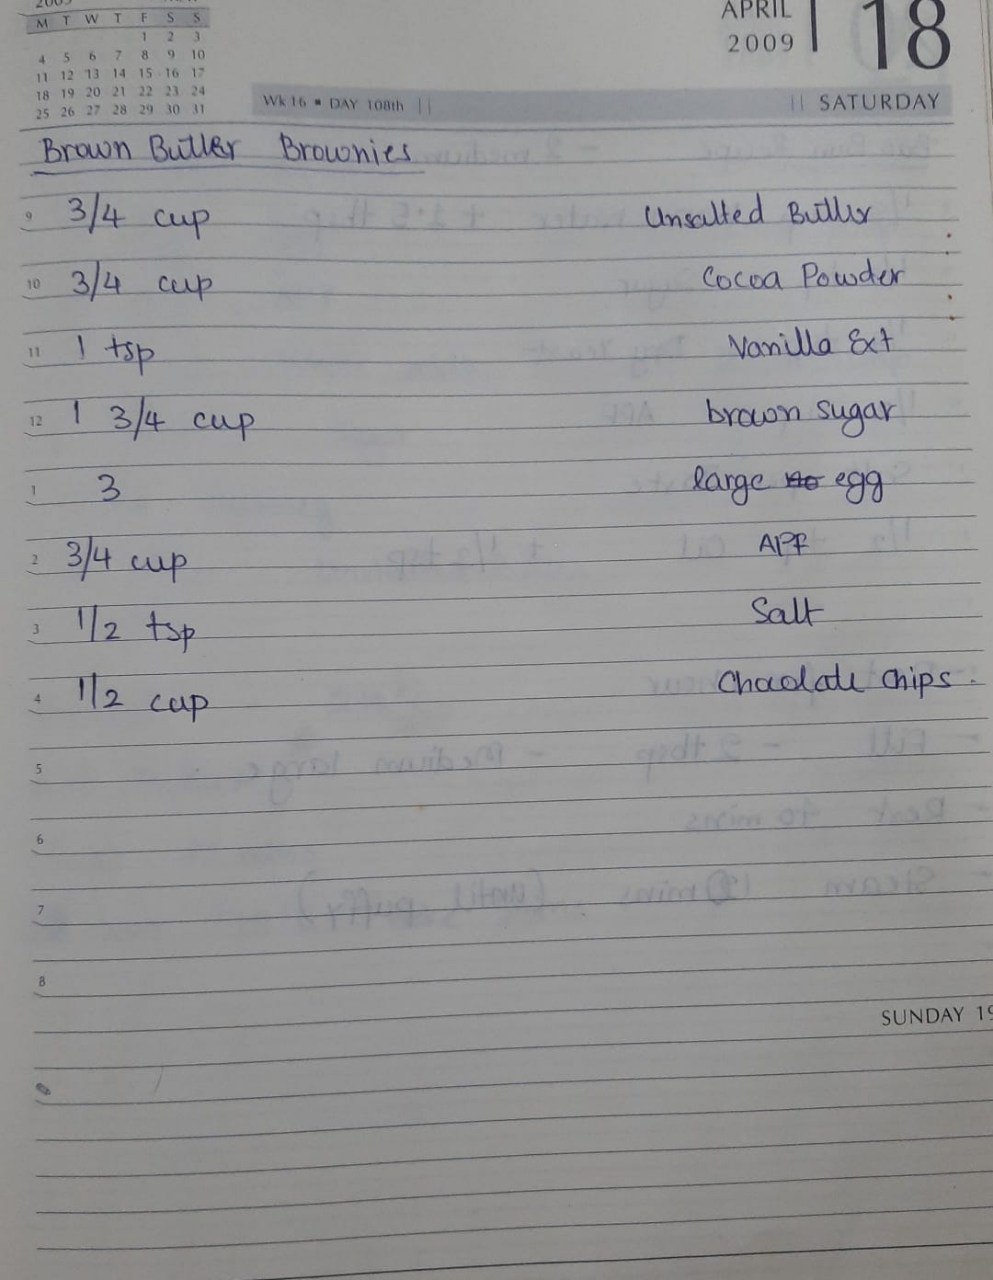 2009
M T W T F S S
1 2 3
4 5 6 7 8 9 10
11 12 13 14 15 16 17
18 19 20 21 22 23 24
25 26 27 28 29 30 31
APRIL
2009
18
Wk 16 ▪ DAY 108th
SATURDAY
Brown Butter Brownies
9 3/4 cup Unsalted Butter
10 3/4 cup Cocoa Powder
11 1 tsp Vanilla Ext
12 1 3/4 cup brown sugar
1 3 large egg
2 3/4 cup APF
3 1/2 tsp Salt
4 1/2 cup Chocolate chips.
5
6
7
8
SUNDAY 19